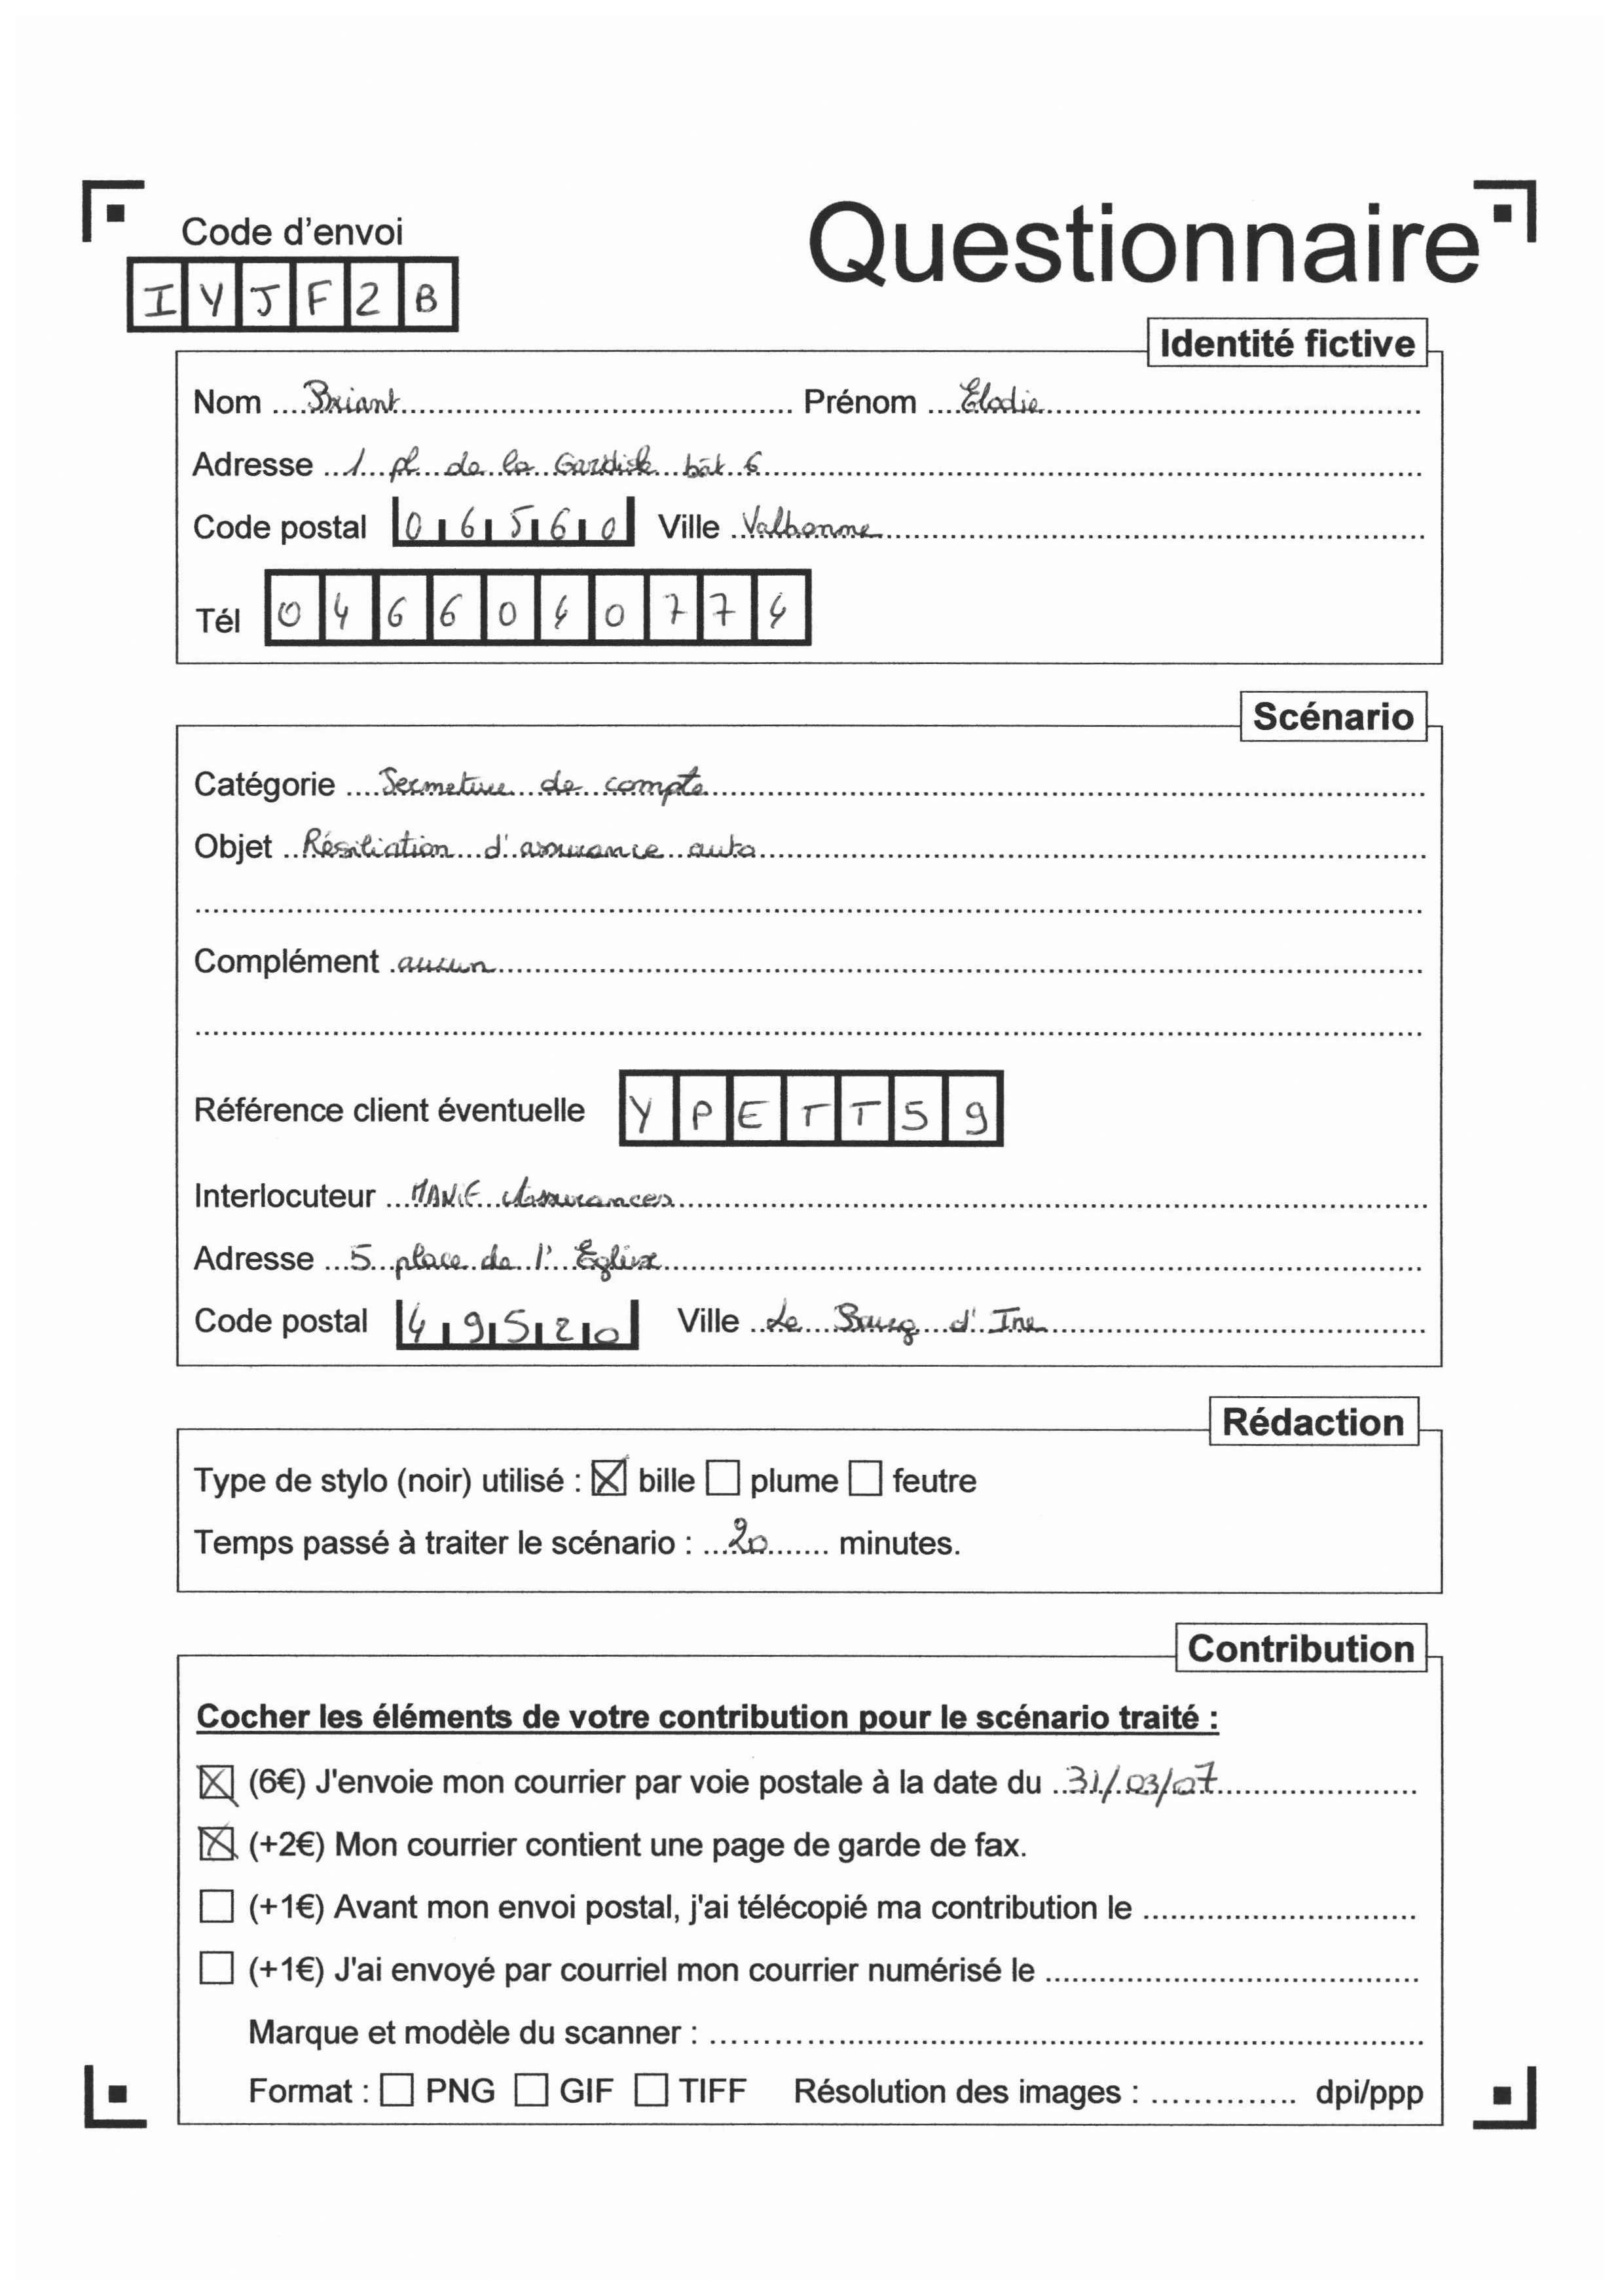 Code d'envoi
Questionnaire
IYJF2B
Identité fictive
Nom Briant Prénom Elodie
Adresse 1 pl de la bât 6
Code postal 06560 Ville Valbonne
Tél 0466040774
Scénario
Catégorie Fermeture de compte
Objet Résiliation d'assurance auto
Complément aucun
Référence client éventuelle YPETT59
Interlocuteur Assurances
Adresse 5 place de l'Eglise
Code postal 49520 Ville Le Bourg d'Iré
Rédaction
Type de stylo (noir) utilisé : ☒ bille ☐ plume ☐ feutre
Temps passé à traiter le scénario : 20 minutes.
Contribution
Cocher les éléments de votre contribution pour le scénario traité :
☒ (6€) J'envoie mon courrier par voie postale à la date du 31/03/07
☒ (+2€) Mon courrier contient une page de garde de fax.
☐ (+1€) Avant mon envoi postal, j'ai télécopié ma contribution le
☐ (+1€) J'ai envoyé par courriel mon courrier numérisé le
Marque et modèle du scanner :
Format : ☐ PNG ☐ GIF ☐ TIFF Résolution des images : dpi/ppp